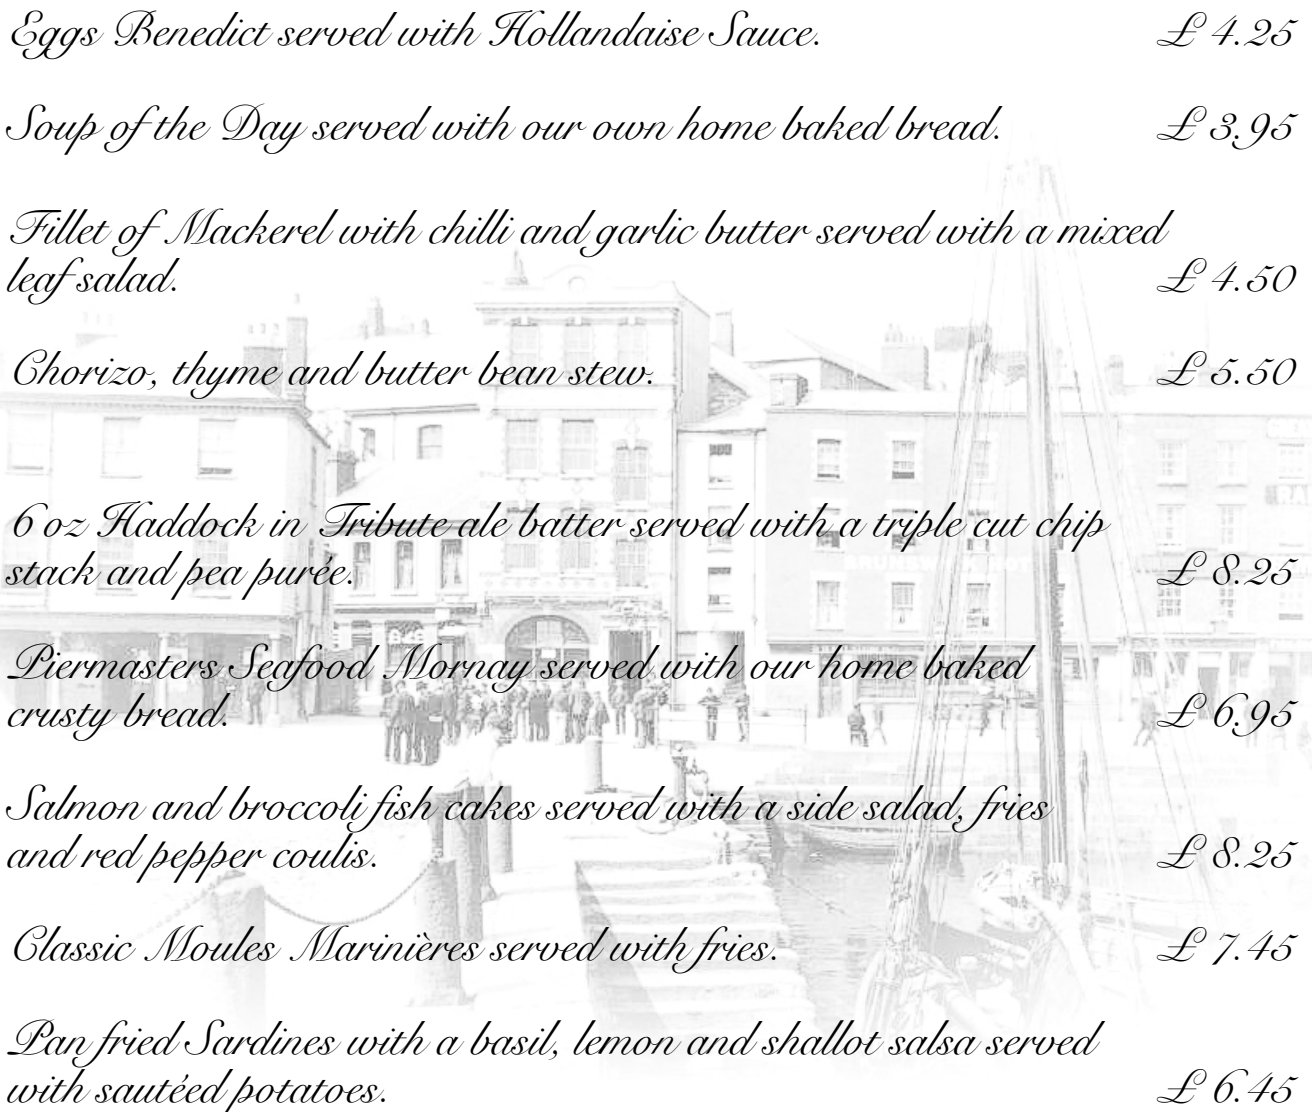 Eggs Benedict served with Hollandaise Sauce. £ 4.25
Soup of the Day served with our own home baked bread. £ 3.95
Fillet of Mackerel with chilli and garlic butter served with a mixed
leaf salad. £ 4.50
Chorizo, thyme and butter bean stew. £ 5.50
6 oz Haddock in Tribute ale batter served with a triple cut chip
stack and pea purée. £ 8.25
Piermasters Seafood Mornay served with our home baked
crusty bread. £ 6.95
Salmon and broccoli fish cakes served with a side salad, fries
and red pepper coulis. £ 8.25
Classic Moules Marinières served with fries. £ 7.45
Pan fried Sardines with a basil, lemon and shallot salsa served
with sautéed potatoes. £ 6.45